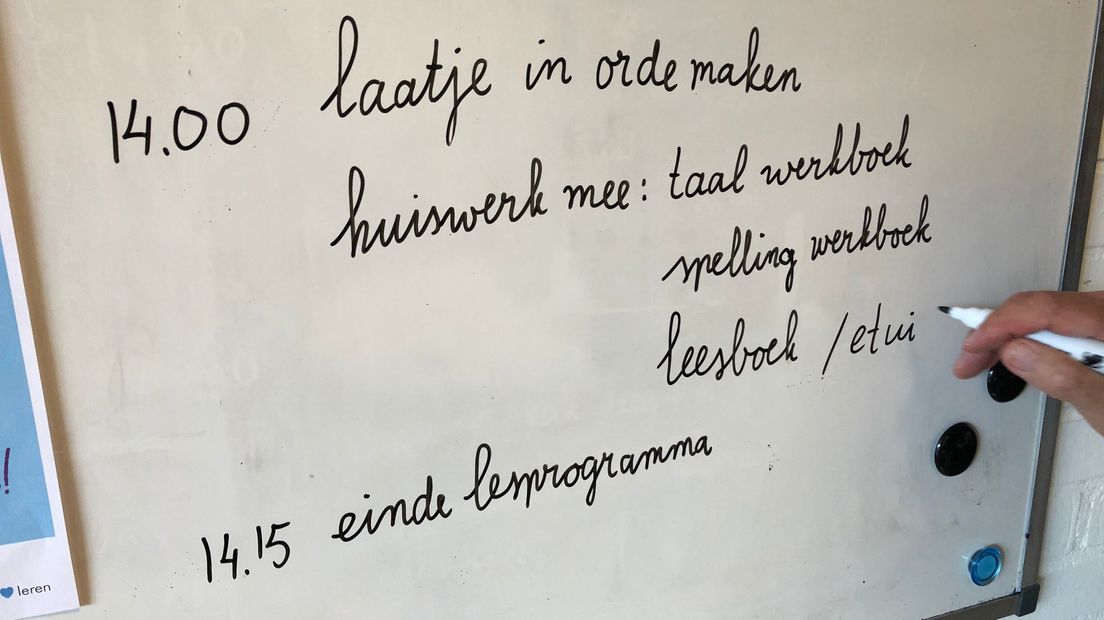 14.00 laatje in orde maken
huiswerk mee: taal werkboek
spelling werkboek
leesboek / etui
14.15 einde lesprogramma
!
leren